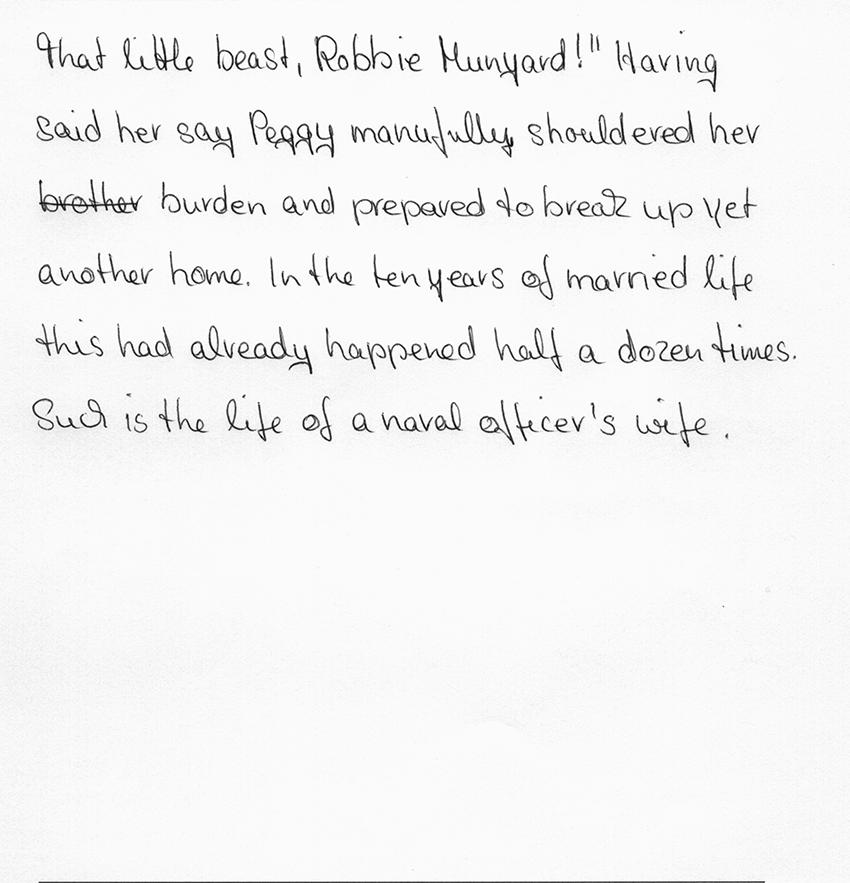 that little beast, Robbie Munyard!" Having
said her say Peggy manufully shouldered her
brother burden and prepared to break up yet
another home. In the ten years of married life
this had already happened half a dozen times.
Such is the life of a naval officer's wife.